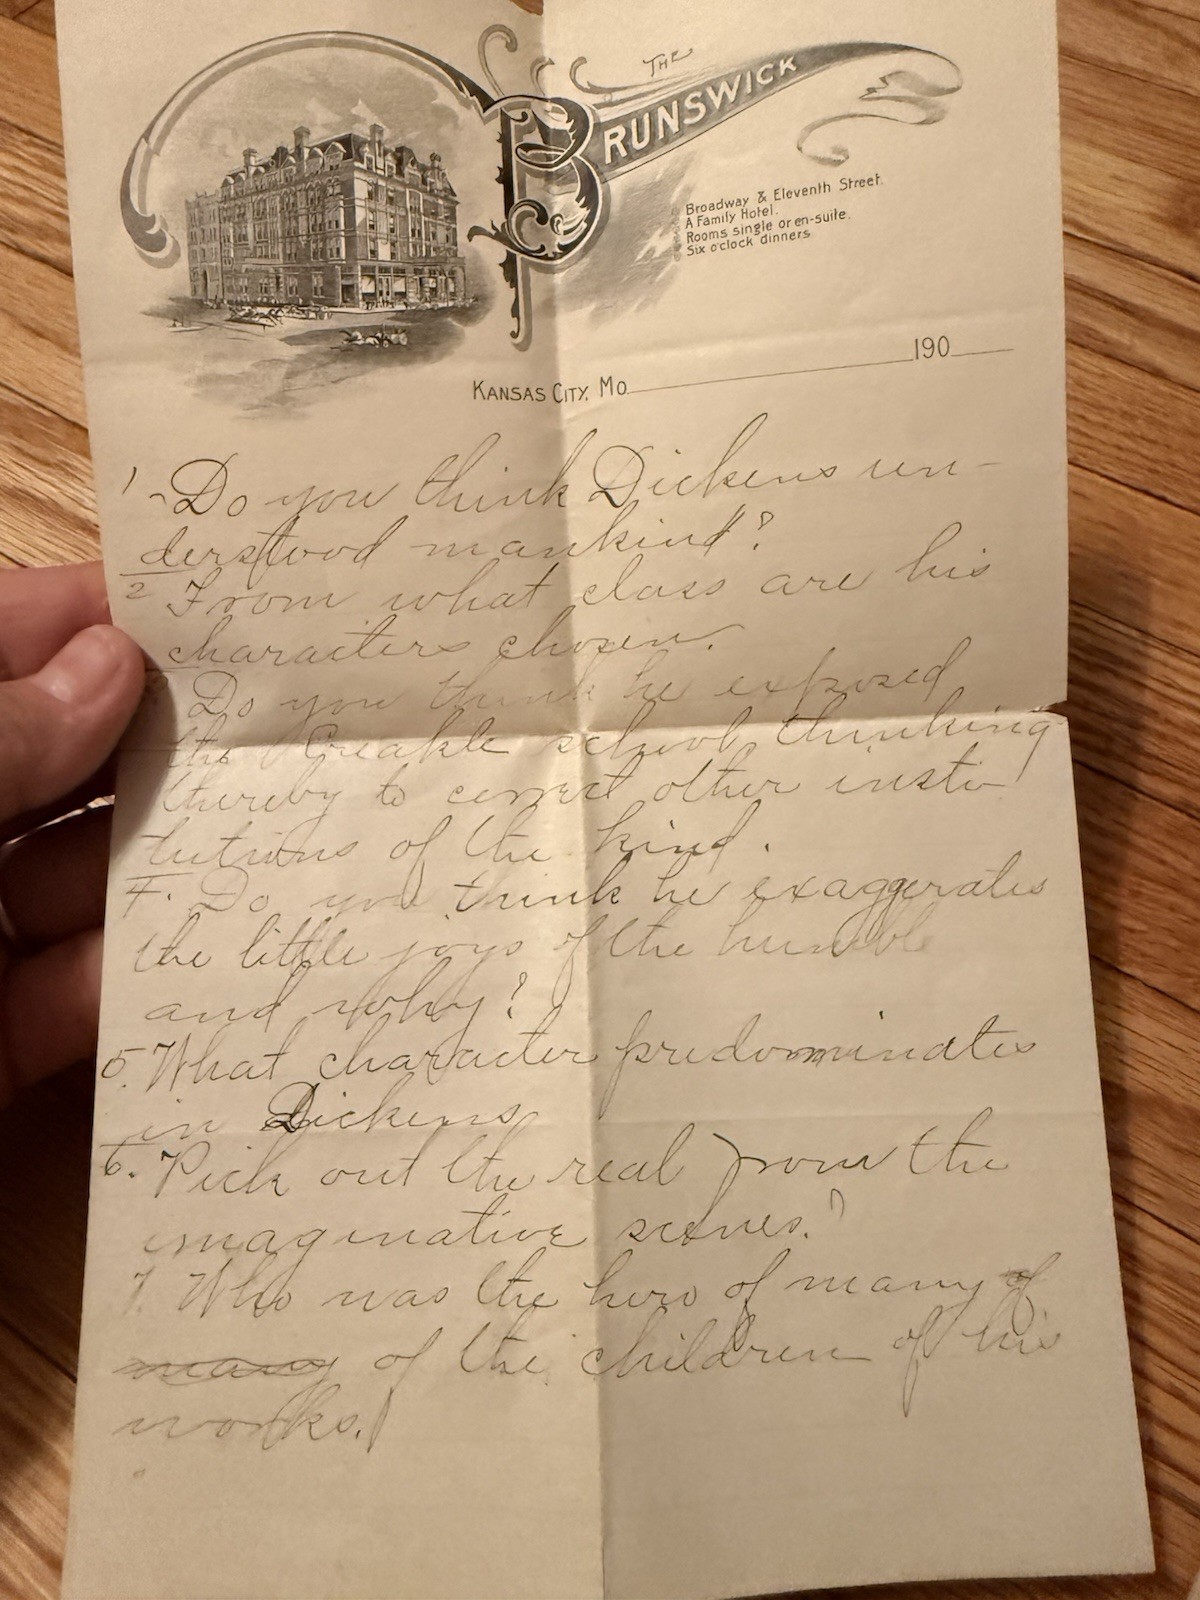 THE
BRUNSWICK
Broadway & Eleventh Street.
A Family Hotel.
Rooms single or en-suite.
Six o'clock dinners
190
KANSAS CITY, MO.
1 - Do you think Dickens un-
derstood mankind?
2 From what class are his
characters chosen.
Do you think he exposed
the Creakle school, thinking
thereby to correct other insti
tutions of the kind.
4. Do you think he exaggerates
the little joys of the humble
and why?
5. What character predominates
in Dickens
6. Pick out the real from the
imaginative scenes.?
7. Who was the hero of many of
many of the children of his
works.